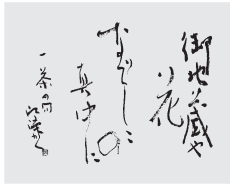 御地蔵や
花
なでしこの
真中に
一茶の句